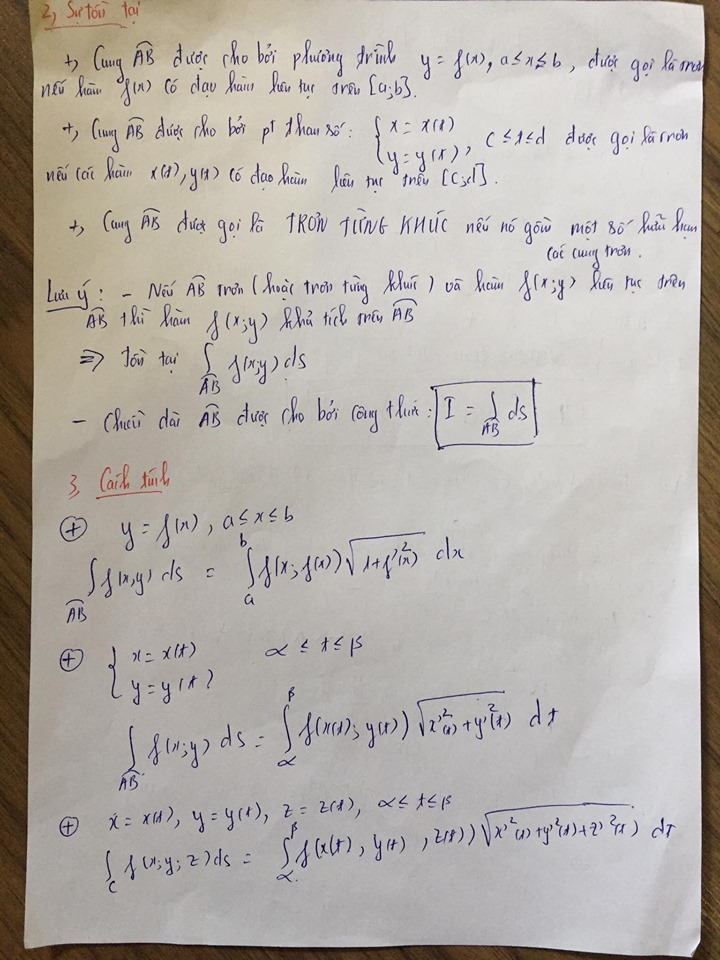 2, Sự tồn tại
+, Cung AB được cho bởi phương trình y = f(x), a ≤ x ≤ b, được gọi là trơn
nếu hàm f(x) có đạo hàm liên tục trên [a;b].
+, Cung AB được cho bởi pt tham số: { x = x(t)
y = y(t), c ≤ t ≤ d được gọi là trơn
nếu các hàm x(t), y(t) có đạo hàm liên tục trên [c;d].
+, Cung AB được gọi là TRƠN TỪNG KHÚC nếu nó gồm một số hữu hạn
các cung trơn.
Lưu ý: - Nếu AB trơn (hoặc trơn từng khúc) và hàm f(x;y) liên tục trên
AB thì hàm f(x;y) khả tích trên AB
⇒ Tồn tại ∫_AB f(x;y) ds
- Chiều dài AB được cho bởi công thức: I = ∫_AB ds
3, Cách tính
⊕ y = f(x), a ≤ x ≤ b
∫_AB f(x,y) ds = ∫_a^b f(x; f(x)) √(1+f'²(x)) dx
⊕ { x = x(t) α ≤ t ≤ β
y = y(t)
∫_AB f(x;y) ds = ∫_α^β f(x(t); y(t)) √(x'²(t) + y'²(t)) dt
⊕ x = x(t), y = y(t), z = z(t), α ≤ t ≤ β
∫_C f(x;y;z) ds = ∫_α^β f(x(t), y(t), z(t)) √(x'²(t) + y'²(t) + z'²(t)) dt